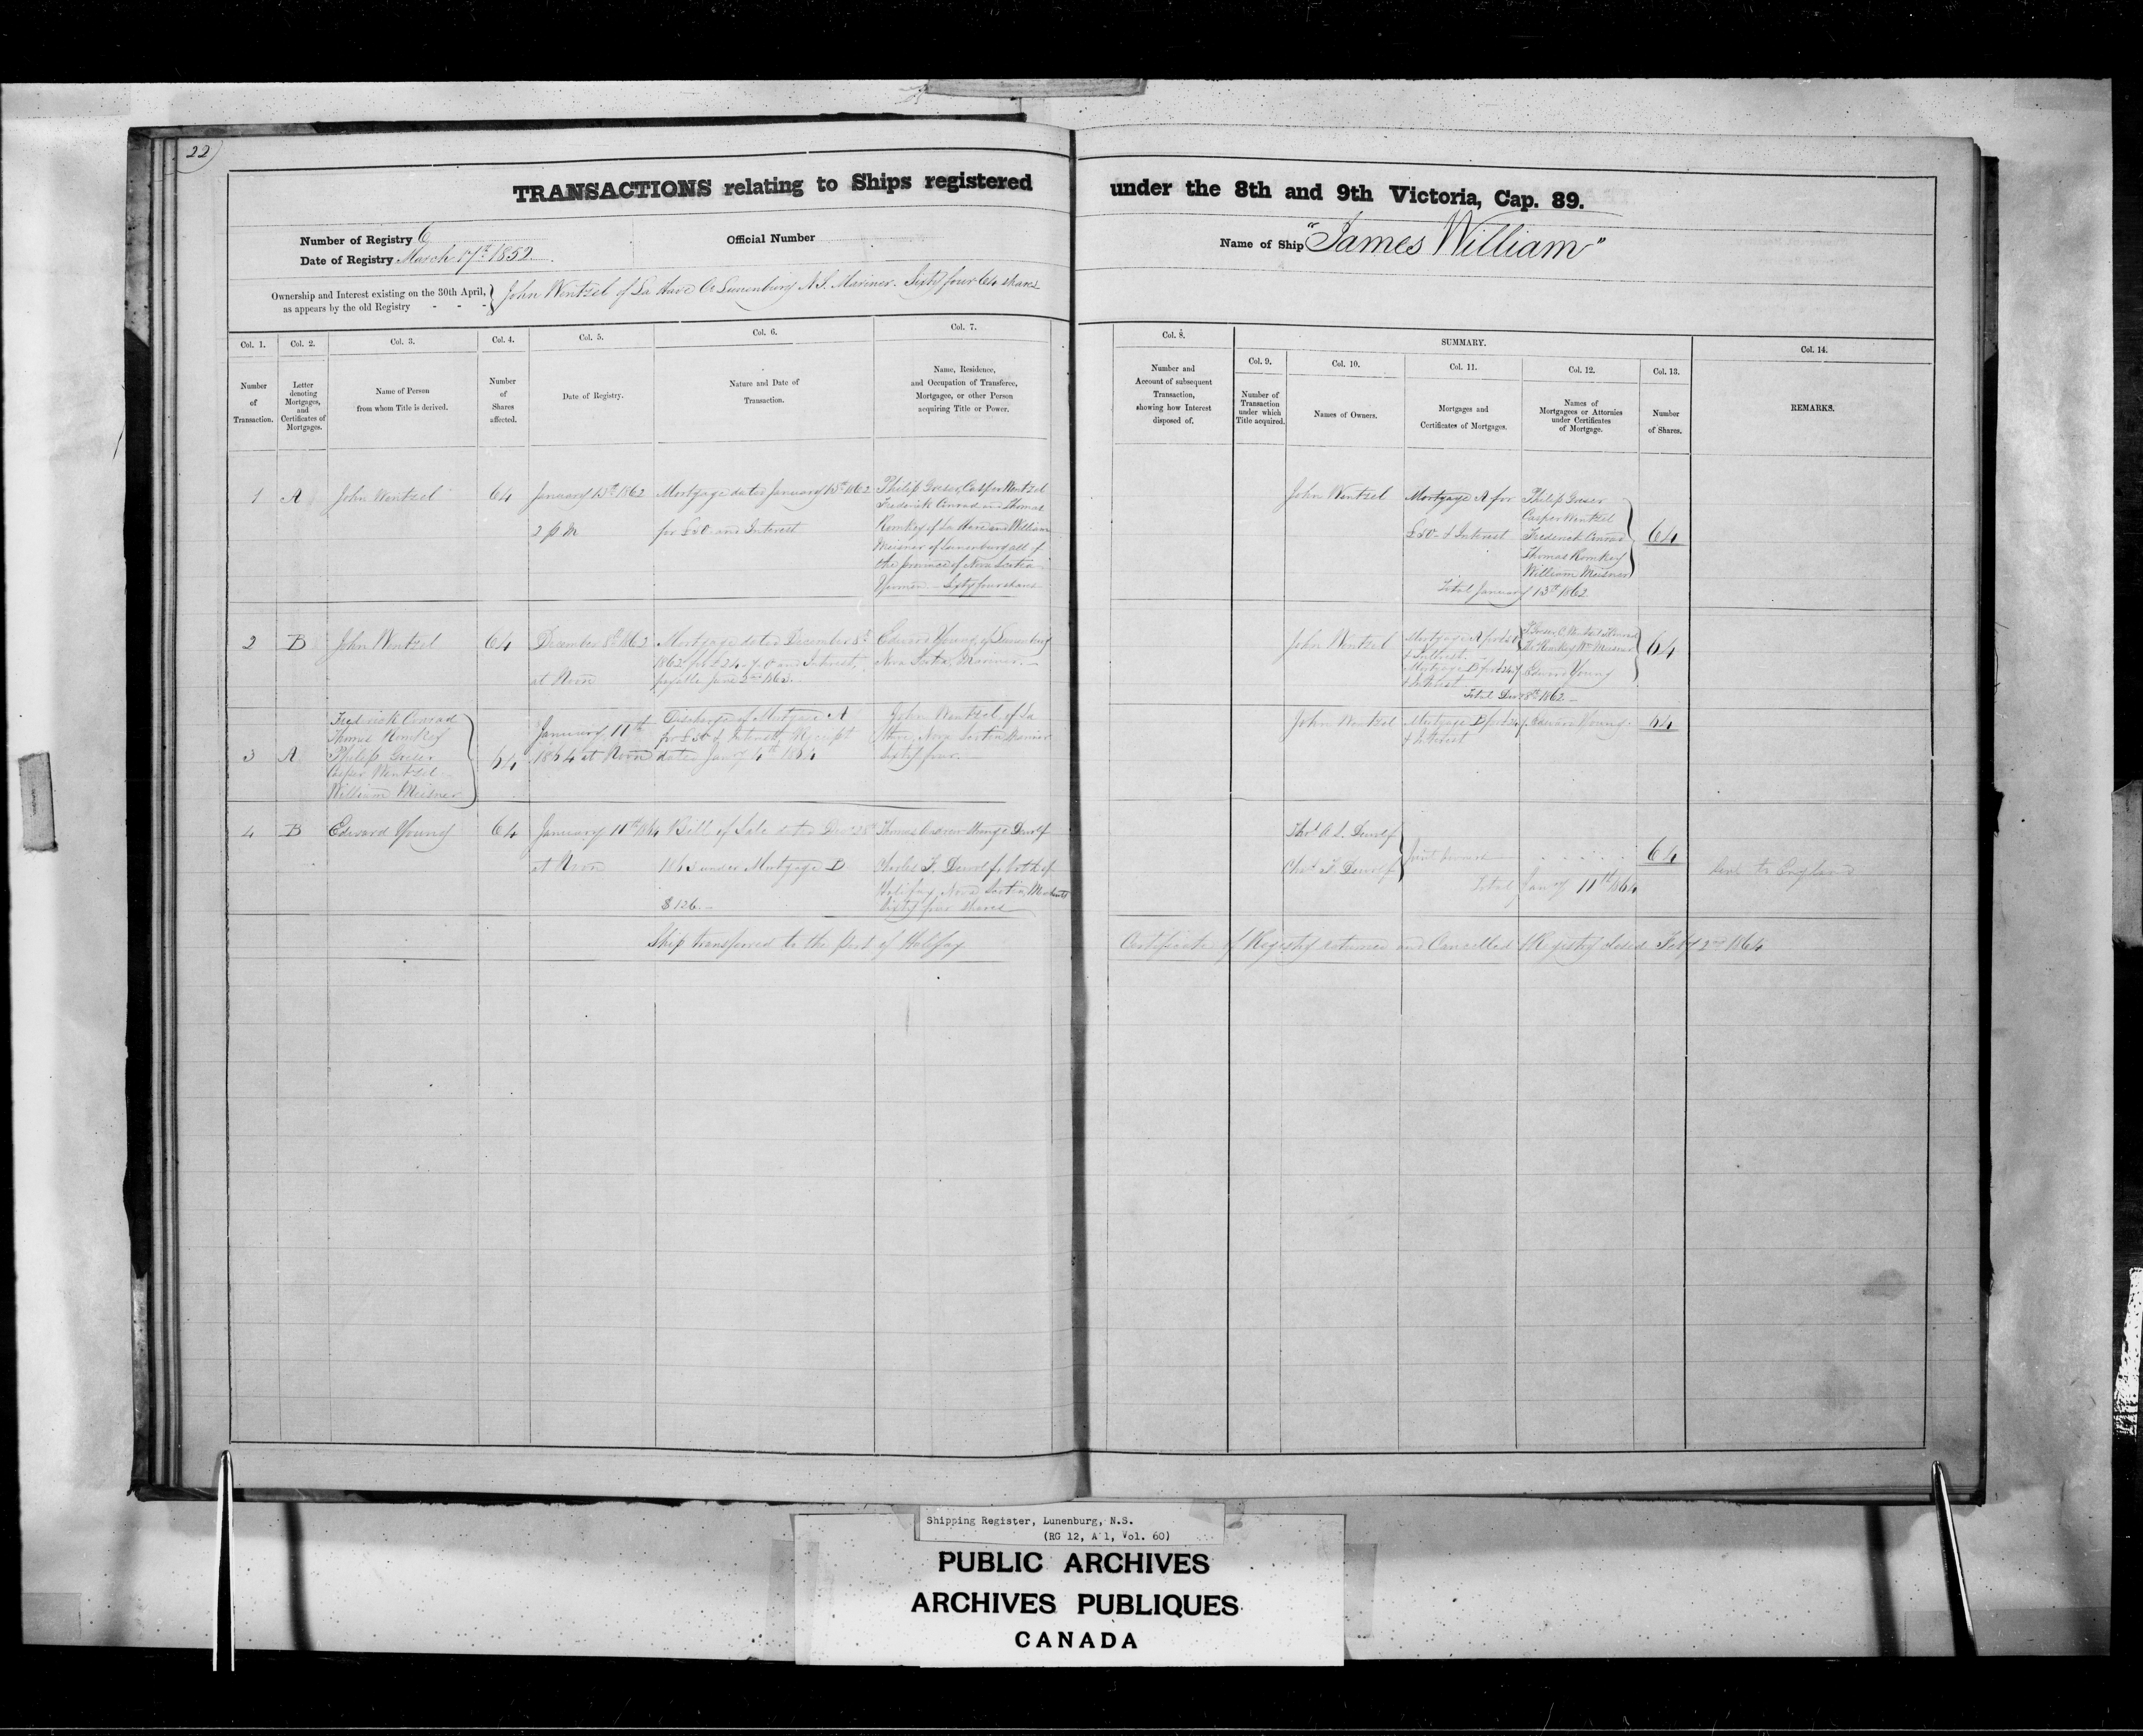 22
TRANSACTIONS relating to Ships registered under the 8th and 9th Victoria, Cap. 89.
Number of Registry 6
Official Number
Name of Ship "James William"
Date of Registry March 17th 1852
Ownership and Interest existing on the 30th April, as appears by the old Registry - - -
John Wentzel of La Have Co Lunenburg N.S. Mariner. Sixty four 64 shares
Col. 1.
Number
of
Transaction.
Col. 2.
Letter
denoting
Mortgages,
and
Certificates of
Mortgages.
Col. 3.
Name of Person
from whom Title is derived.
Col. 4.
Number
of
Shares
affected.
Col. 5.
Date of Registry.
Col. 6.
Nature and Date of
Transaction.
Col. 7.
Name, Residence,
and Occupation of Transferee,
Mortgagee, or other Person
acquiring Title or Power.
Col. 8.
Number and
Account of subsequent
Transaction,
showing how Interest
disposed of.
SUMMARY.
Col. 9.
Number of
Transaction
under which
Title acquired.
Col. 10.
Names of Owners.
Col. 11.
Mortgages and
Certificates of Mortgages.
Col. 12.
Names of
Mortgagees or Attornies
under Certificates
of Mortgage.
Col. 13.
Number
of Shares.
Col. 14.
REMARKS.
1
A
John Wentzel
64
January 13th 1862
2 p M
Mortgage dated January 13th 1862
for £50 and Interest
Philip Greser, Casper Wentzel
Frederick Conrad and Thomas
Romkey of La Have and William
Meisner of Lunenburg all of
the province of Nova Scotia
Yeomen - Sixty four shares
John Wentzel
Mortgage A for
£50 & Interest
Philip Greser
Casper Wentzel
Frederick Conrad
Thomas Romkey
William Meisner
64
Total January 13th 1862
2
B
John Wentzel
64
December 8th 1862
at Noon
Mortgage dated December 8th
1862 for £24-7-0 and Interest,
payable June 2nd 1863.
Edward Young, of Lunenburg
Nova Scotia, Mariner.
John Wentzel
Mortgage A for £50
& Interest
Mortgage B for £24.7
& Interest
P Greser, C Wentzel, F Conrad
Th Romkey Wm Meisner
Edward Young
64
Total Decr 8th 1862
3
A
Frederick Conrad
Thomas Romkey
Philip Greser
Casper Wentzel
William Meisner
64
January 11th
1864 at Noon
Discharge of Mortgage A
for £50 & Interest, Receipt
dated Jany 4th 1864
John Wentzel, of La
Have, Nova Scotia Mariner
Sixty four.
John Wentzel
Mortgage B for £24.7
& Interest
Edward Young.
64
4
B
Edward Young
64
January 11th 1864
at Noon
Bill of Sale dated Decr 28th
1863 under Mortgage B
$126.-
Thomas Andrew Dewolf
Charles F. Dewolf, both of
Halifax, Nova Scotia, Merchants
Sixty four shares
Thos A S. Dewolf
Chas F Dewolf
joint owners
64
Total Jany 11th 1864
Sent to England
Ship transferred to the Port of Halifax
Certificate of Registry returned and Cancelled & Registry closed Feby 2nd 1864
Shipping Register, Lunenburg, N.S.
(RG 12, A 1, Vol. 60)
PUBLIC ARCHIVES
ARCHIVES PUBLIQUES
CANADA